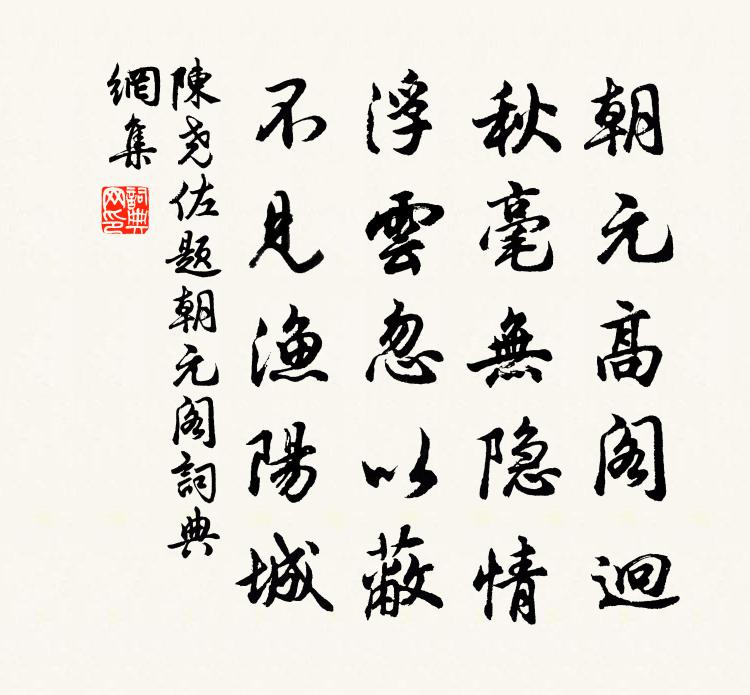 朝元高阁迥
秋毫無隐情
浮雲忽以蔽
不見漁陽城
陳尧佐题朝元阁詞典
網集
詞典
网印